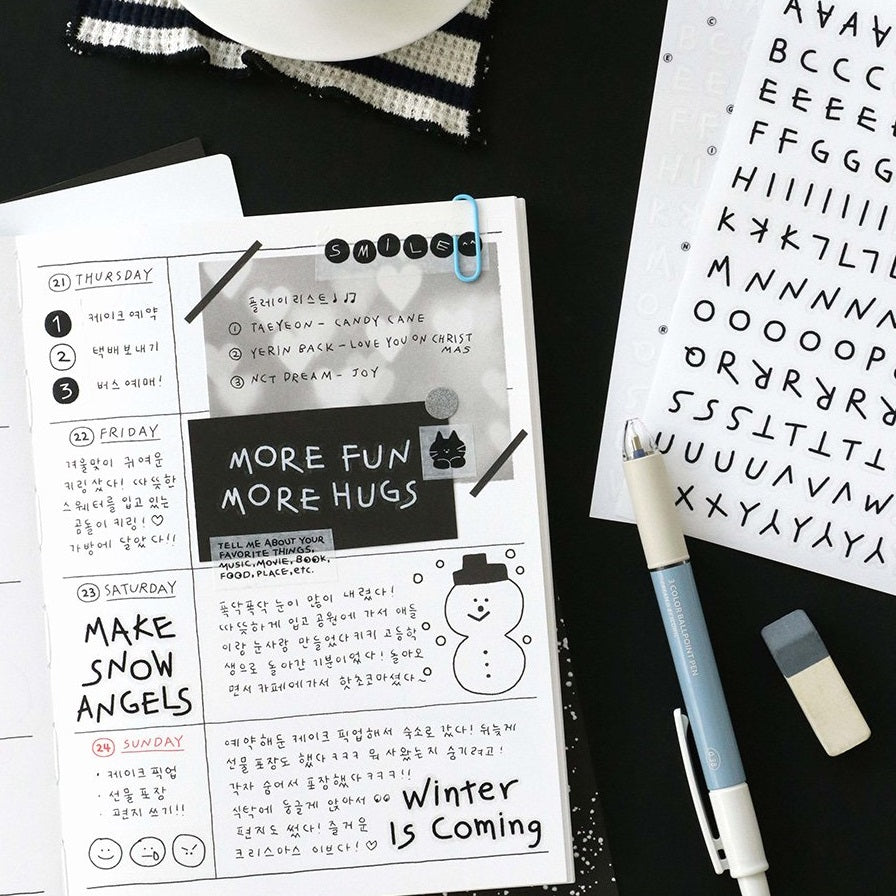 SMILE ^^
21 THURSDAY
1 케이크 예약
2 택배 보내기
3 버스 예매!
플레이리스트♩♪♫
① TAEYEON - CANDY CANE
② YERIN BACK - LOVE YOU ON CHRIST
MAS
③ NCT DREAM - JOY
22 FRIDAY
겨울맞이 귀여운
키링 샀다! 따뜻한
스웨터를 입고 있는
곰돌이 키링!♡
가방에 달았다!!
MORE FUN
MORE HUGS
TELL ME ABOUT YOUR
FAVORITE THINGS,
MUSIC, MOVIE, BOOK,
FOOD, PLACE, etc.
23 SATURDAY
MAKE
SNOW
ANGELS
폭닥폭닥 눈이 많이 내렸다!
따뜻하게 입고 공원에 가서 애들
이랑 눈사람 만들었다 키키 고등학
생으로 돌아간 기분이었다! 돌아오
면서 카페에 가서 핫초코 마셨다~
24 SUNDAY
· 케이크 픽업
· 선물 포장
· 편지 쓰기!!
예약해둔 케이크 픽업해서 숙소로 갔다! 뒤늦게
선물 포장도 했다 ㅋㅋㅋ 뭐 사왔는지 숨기려고!
각자 숨어서 포장했다 ㅋㅋㅋ!!
식탁에 둥글게 앉아서
편지도 썼다! 즐거운
크리스마스 이브다!♡
Winter
Is Coming
A A A A
B C C C
E E E E E
F F G G G
H I I I I I I
K K K L L L
W N N N N
O O O O O P
Q R R R R
S S S S T T T T
U U U U V V V W
X X Y Y Y Y
C
E
G
I
N
R
3 COLOR BALLPOINT PEN
0.38